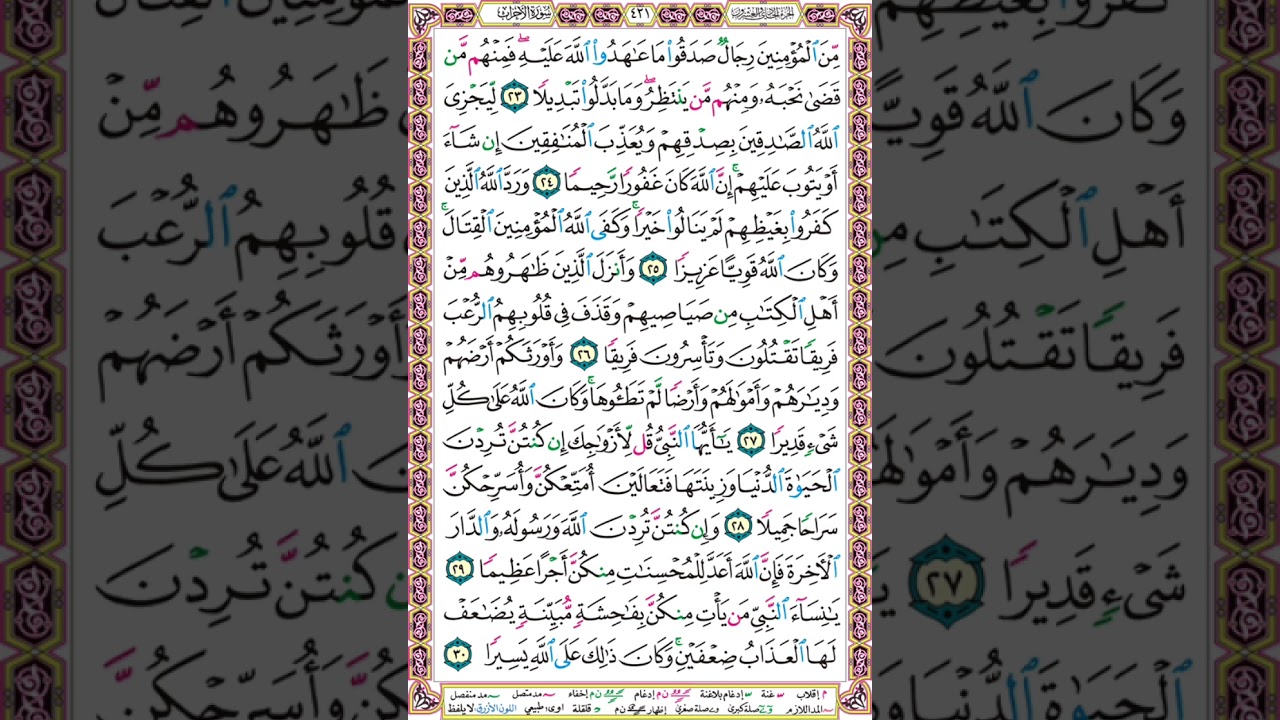 الجزء الحادي والعشرون ٤٢١ سورة الأحزاب
مِّنَ ٱلْمُؤْمِنِينَ رِجَالٌ صَدَقُوا۟ مَا عَـٰهَدُوا۟ ٱللَّهَ عَلَيْهِ ۖ فَمِنْهُم مَّن
قَضَىٰ نَحْبَهُۥ وَمِنْهُم مَّن يَنتَظِرُ ۖ وَمَا بَدَّلُوا۟ تَبْدِيلًا ٢٣ لِّيَجْزِىَ
ٱللَّهُ ٱلصَّـٰدِقِينَ بِصِدْقِهِمْ وَيُعَذِّبَ ٱلْمُنَـٰفِقِينَ إِن شَآءَ
أَوْ يَتُوبَ عَلَيْهِمْ ۚ إِنَّ ٱللَّهَ كَانَ غَفُورًا رَّحِيمًا ٢٤ وَرَدَّ ٱللَّهُ ٱلَّذِينَ
كَفَرُوا۟ بِغَيْظِهِمْ لَمْ يَنَالُوا۟ خَيْرًا ۚ وَكَفَى ٱللَّهُ ٱلْمُؤْمِنِينَ ٱلْقِتَالَ ۚ
وَكَانَ ٱللَّهُ قَوِيًّا عَزِيزًا ٢٥ وَأَنزَلَ ٱلَّذِينَ ظَـٰهَرُوهُم مِّنْ
أَهْلِ ٱلْكِتَـٰبِ مِن صَيَاصِيهِمْ وَقَذَفَ فِى قُلُوبِهِمُ ٱلرُّعْبَ
فَرِيقًا تَقْتُلُونَ وَتَأْسِرُونَ فَرِيقًا ٢٦ وَأَوْرَثَكُمْ أَرْضَهُمْ
وَدِيَـٰرَهُمْ وَأَمْوَٰلَهُمْ وَأَرْضًا لَّمْ تَطَـُٔوهَا ۚ وَكَانَ ٱللَّهُ عَلَىٰ كُلِّ
شَىْءٍ قَدِيرًا ٢٧ يَـٰٓأَيُّهَا ٱلنَّبِىُّ قُل لِّأَزْوَٰجِكَ إِن كُنتُنَّ تُرِدْنَ
ٱلْحَيَوٰةَ ٱلدُّنْيَا وَزِينَتَهَا فَتَعَالَيْنَ أُمَتِّعْكُنَّ وَأُسَرِّحْكُنَّ
سَرَاحًا جَمِيلًا ٢٨ وَإِن كُنتُنَّ تُرِدْنَ ٱللَّهَ وَرَسُولَهُۥ وَٱلدَّارَ
ٱلْـَٔاخِرَةَ فَإِنَّ ٱللَّهَ أَعَدَّ لِلْمُحْسِنَـٰتِ مِنكُنَّ أَجْرًا عَظِيمًا ٢٩
يَـٰنِسَآءَ ٱلنَّبِىِّ مَن يَأْتِ مِنكُنَّ بِفَـٰحِشَةٍ مُّبَيِّنَةٍ يُضَـٰعَفْ
لَهَا ٱلْعَذَابُ ضِعْفَيْنِ ۚ وَكَانَ ذَٰلِكَ عَلَى ٱللَّهِ يَسِيرًا ٣٠
م إقلاب غنة إدغام بلاغنة ن م إدغام ن م إخفاء مد متصل مد منفصل
المد اللازم صلة كبرى صلة صغرى إظهار ن م قلقلة اوى طبيعي اللون الأزرق لا يلفظ